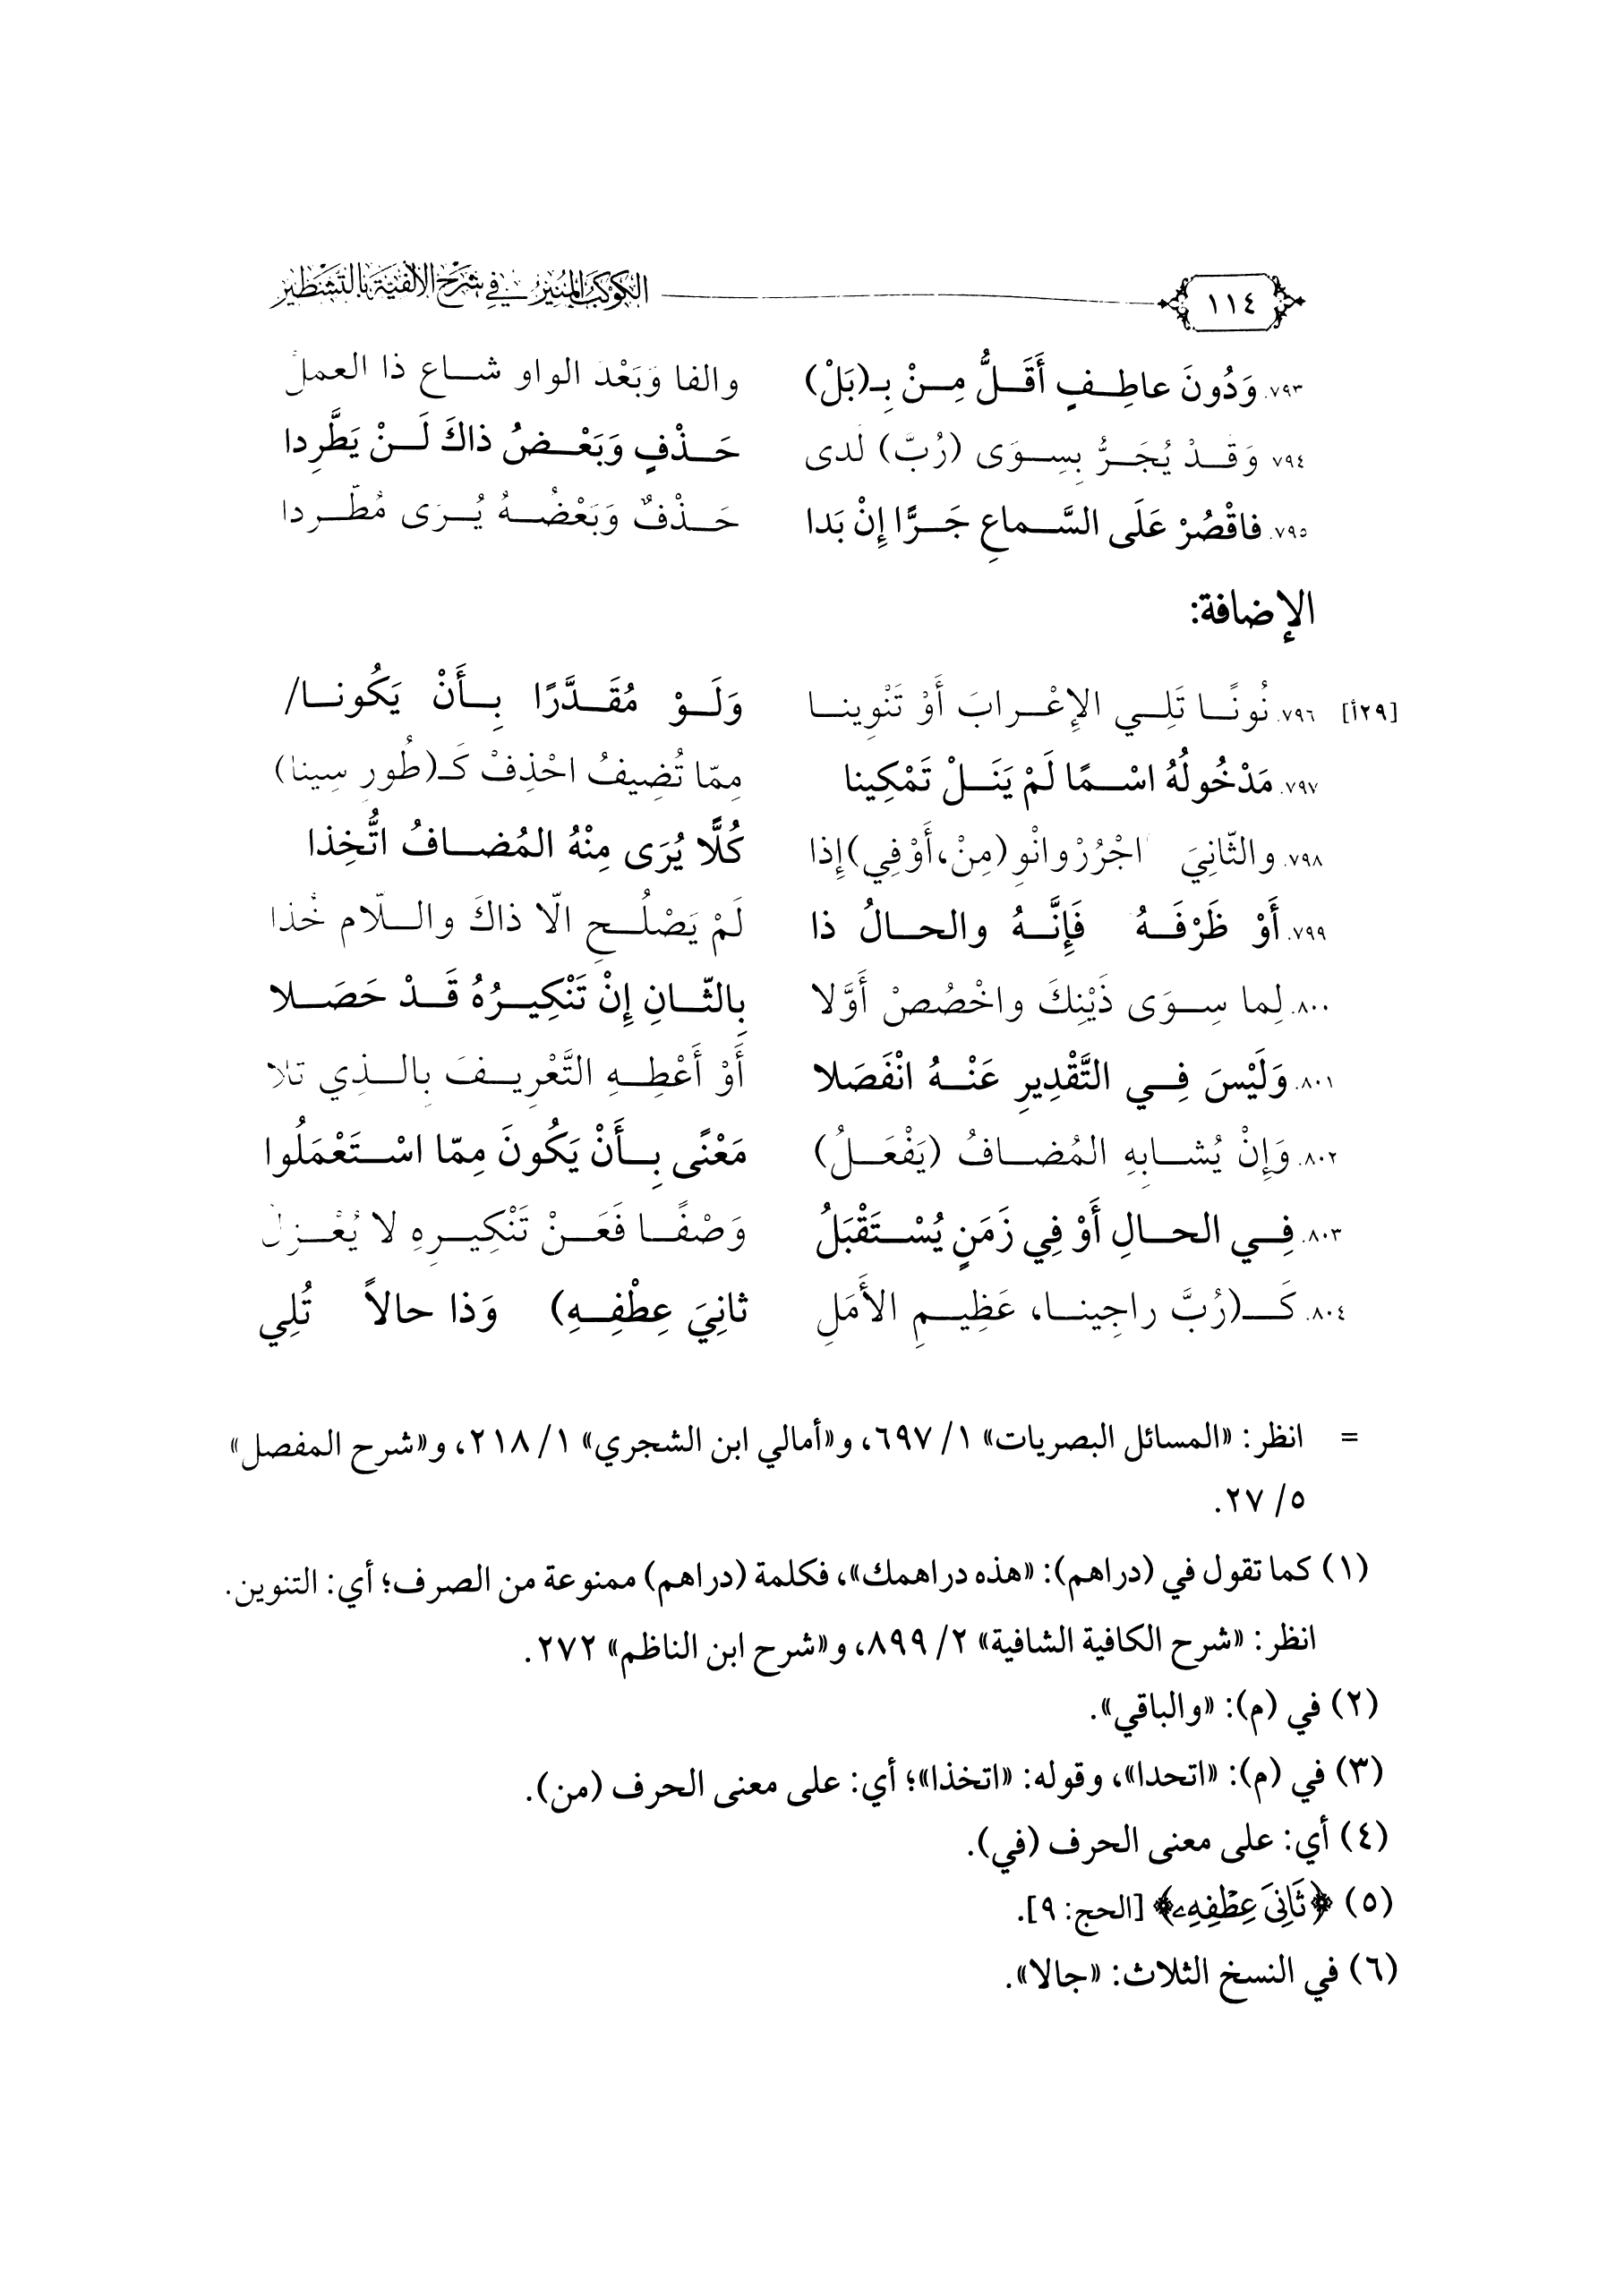 ١١٤ الكوكب المنير في شرح الألفية بالتشطير
٧٩٣. وَدُونَ عاطِفٍ أَقَلُّ مِنْ بِـ(بَلْ) والفا وَبَعْدَ الواو شاع ذا العملْ
٧٩٤ وَقَدْ يُجَرُّ بِسِوَى (رُبَّ) لَدى حَذْفٍ وَبَعْضُ ذاكَ لَنْ يَطَّرِدا
٧٩٥. فاقْصُرْ عَلَى السَّماعِ جَرًّا إِنْ بَدا حَذْفٌ وَبَعْضُهُ يُرَى مُطَّرِدا
الإضافة:
[٢٩أ] ٧٩٦. نُونًا تَلِي الإِعْرابَ أَوْ تَنْوِينا وَلَوْ مُقَدَّرًا بِأَنْ يَكُونا/
٧٩٧. مَدْخُولُهُ اسْمًا لَمْ يَنَلْ تَمْكِينا مِمّا تُضِيفُ احْذِفْ كَـ(طُورِ سِينا)
٧٩٨. والثّانِيَ اجْرُرْ وانْوِ (مِنْ، أَوْ فِي) إِذا كُلًّا يُرَى مِنْهُ المُضافُ اتُّخِذا
٧٩٩. أَوْ ظَرْفَهُ فَإِنَّهُ والحالُ ذا لَمْ يَصْلُحِ الّا ذاكَ واللّام خُذا
٨٠٠. لِما سِوَى ذَيْنِكَ واخْصُصْ أَوَّلا بِالثّانِ إِنْ تَنْكِيرُهُ قَدْ حَصَلا
٨٠١. وَلَيْسَ فِي التَّقْدِيرِ عَنْهُ انْفَصَلا أَوْ أَعْطِهِ التَّعْرِيفَ بِالذِي تلا
٨٠٢. وَإِنْ يُشابِهِ المُضافُ (يَفْعَلُ) مَعْنًى بِأَنْ يَكُونَ مِمّا اسْتَعْمَلُوا
٨٠٣. فِي الحالِ أَوْ فِي زَمَنٍ يُسْتَقْبَلُ وَصْفًا فَعَنْ تَنْكِيرِهِ لا يُعْزَلُ
٨٠٤. كَـ(رُبَّ راجِينا، عَظِيمِ الأَمَلِ ثانِيَ عِطْفِهِ) وَذا حالاً تُلِي
= انظر: «المسائل البصريات» ١/ ٦٩٧، و«أمالي ابن الشجري» ١/ ٢١٨، و«شرح المفصل»
٥/ ٢٧.
(١) كما تقول في (دراهم): «هذه دراهمك»، فكلمة (دراهم) ممنوعة من الصرف؛ أي: التنوين.
انظر: «شرح الكافية الشافية» ٢/ ٨٩٩، و«شرح ابن الناظم» ٢٧٢.
(٢) في (م): «والباقي».
(٣) في (م): «اتحدا»، وقوله: «اتخذا»؛ أي: على معنى الحرف (من).
(٤) أي: على معنى الحرف (في).
(٥) ﴿ثَانِيَ عِطْفِهِۦ﴾ [الحج: ٩].
(٦) في النسخ الثلاث: «جالا».